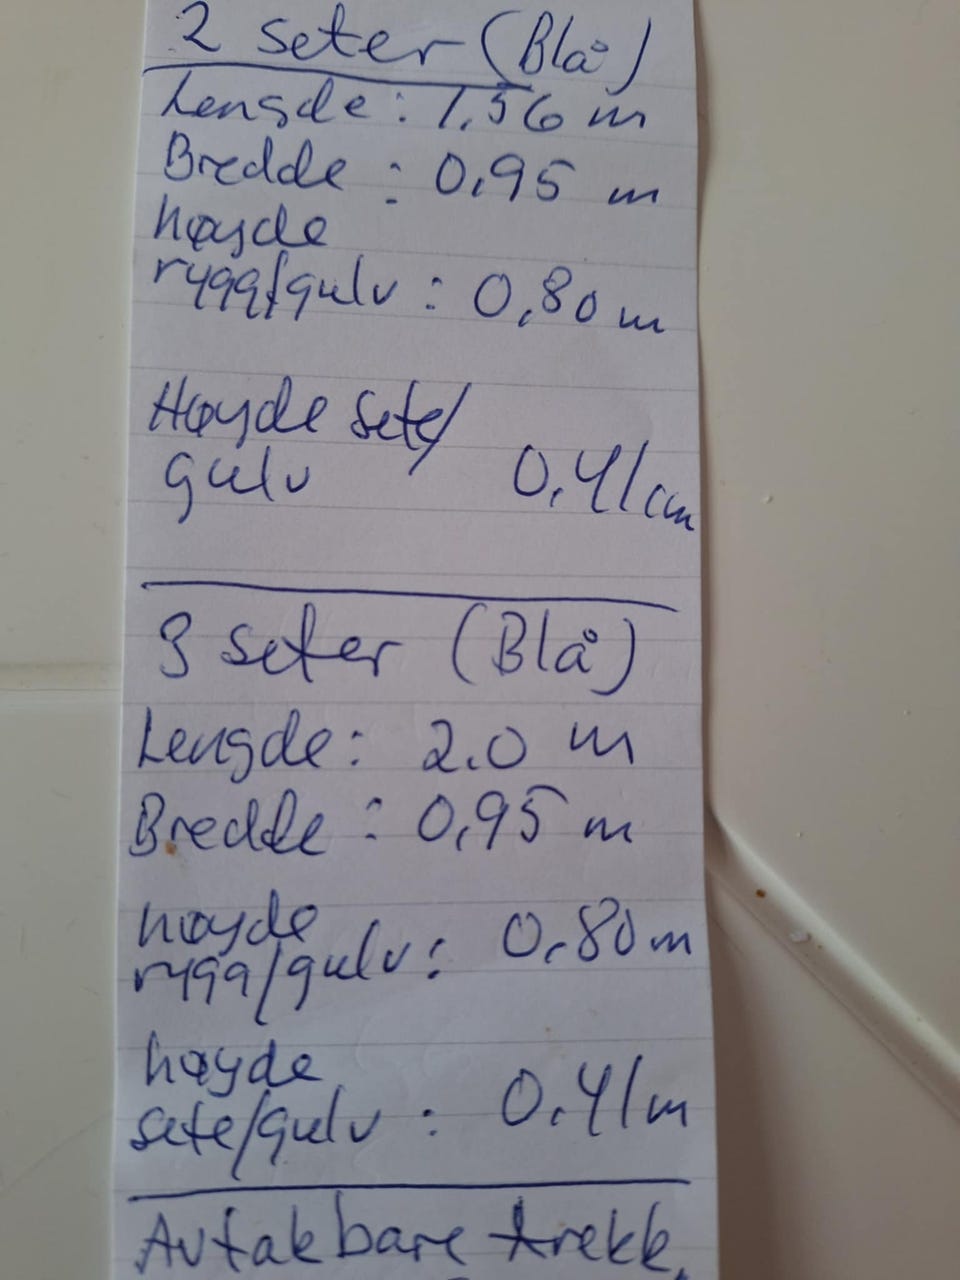 2 seter (Blå)
Lengde: 1.56 m
Bredde: 0,95 m
høyde
rygg/gulv: 0,80 m
Høyde sete/
gulv 0,41 cm
3 seter (Blå)
Lengde: 2.0 m
Bredde: 0,95 m
høyde
rygg/gulv: 0,80 m
høyde
sete/gulv: 0,41 m
Avtakbare trekk,